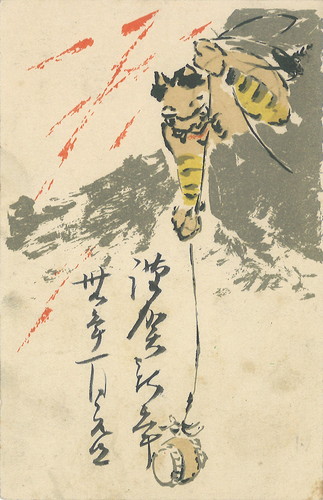 謹賀新年
卅九年一月元旦